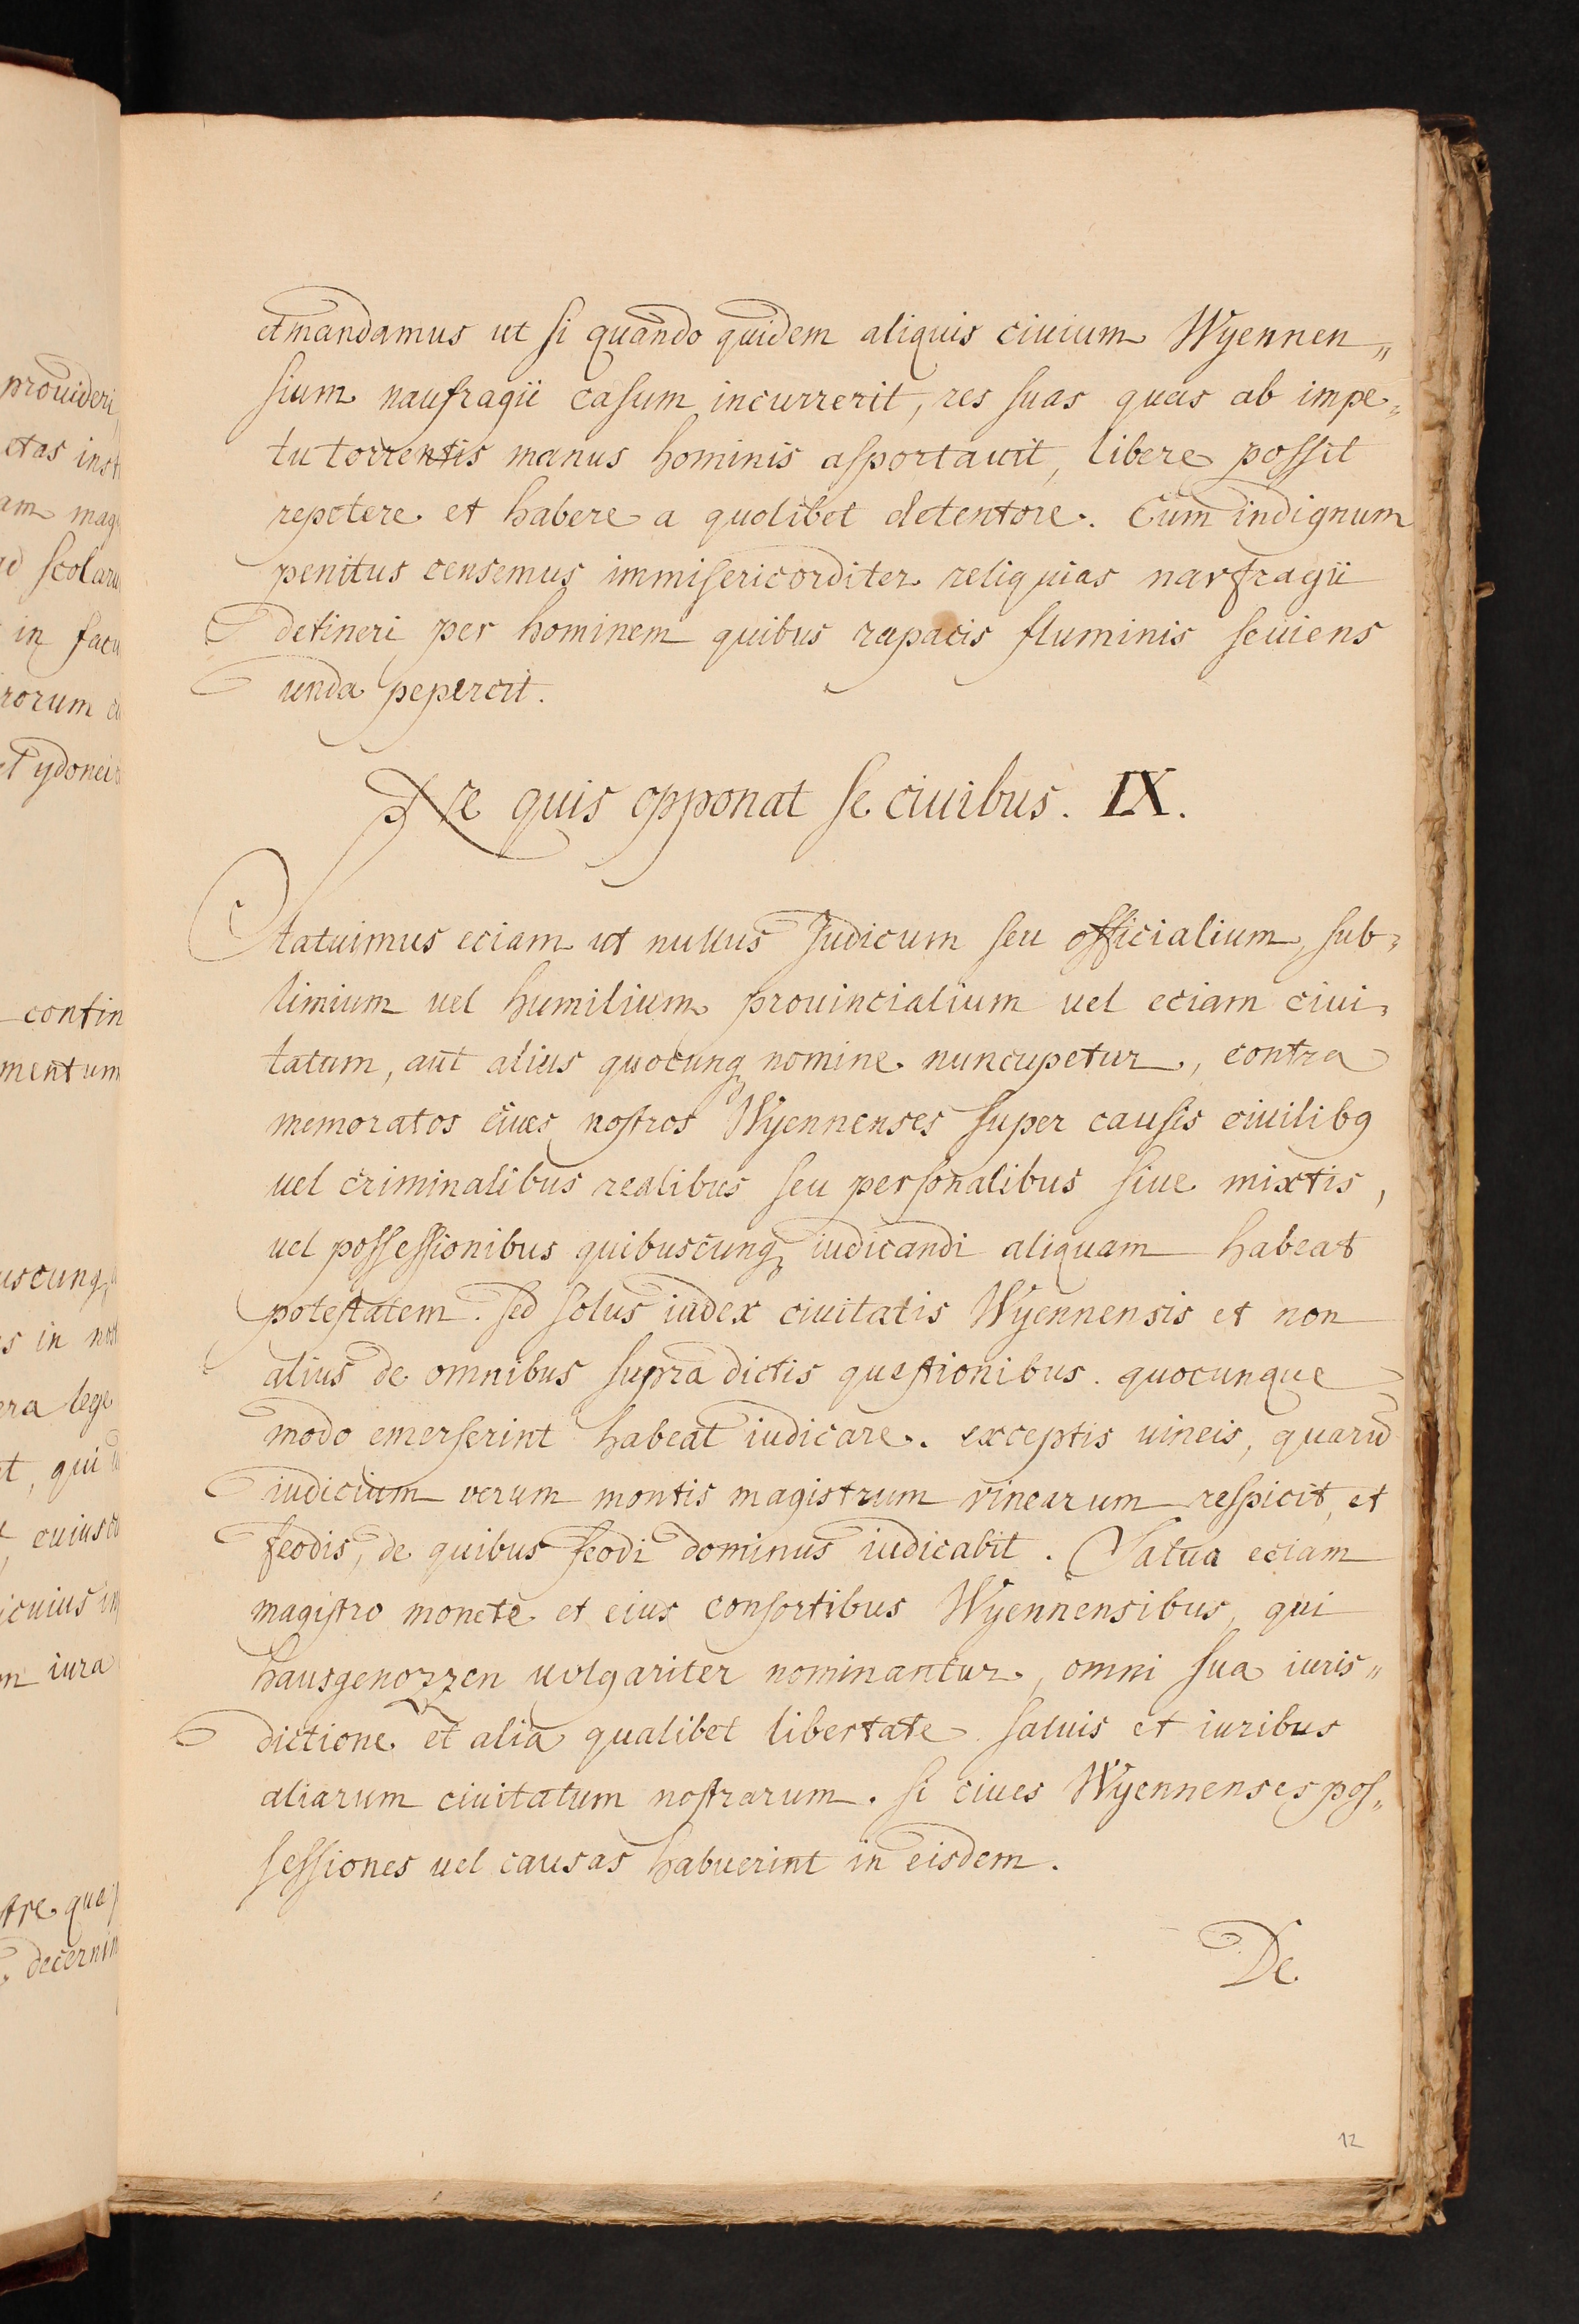 prouideri
etas inst
am mag
ad scolaru
in facu
rorum
et ydonei
contin
mentum
uscunq
s in nost
era lege
t, qui
cuius
icuius
m iura
que
decernim
et mandamus ut si quando quidem aliquis ciuium Wyennen„
sium naufragii casum incurrerit, res suas quas ab impe„
tu torrentis manus hominis asportauit, libere possit
repetere et habere a quolibet detentore. Cum indignum
penitus censemus immisericorditer reliquias naufragii
detineri per hominem quibus rapacis fluminis seuiens
unda pepercit.
Ne quis opponat se ciuibus. IX.
Statuimus eciam ut nullus Judicum seu officialium, sub„
limium uel humilium prouincialium uel eciam ciui„
tatum, aut alius quocunq nomine nuncupetur, contra
memoratos ciues nostros Wyennenses super causis ciuilib9
uel criminalibus realibus seu personalibus siue mixtis,
uel possessionibus quibuscunq iudicandi aliquam habeat
potestatem. sed solus iudex ciuitatis Wyennensis et non
alius de omnibus supra dictis questionibus. quocunque
modo emerserint habeat iudicare. exceptis uineis, quarū
iudicium uerum montis magistrum vinearum respicit, et
feodis, de quibus feodi dominus iudicabit. Salua eciam
magistro monete et eius consortibus Wyennensibus, qui
hausgenozzen uolgariter nominantur, omni sua iuris„
dictione et alia qualibet libertate saluis et iuribus
aliarum ciuitatum nostrarum. si ciues Wyennenses pos„
sessiones uel causas habuerint in eisdem.
De
12